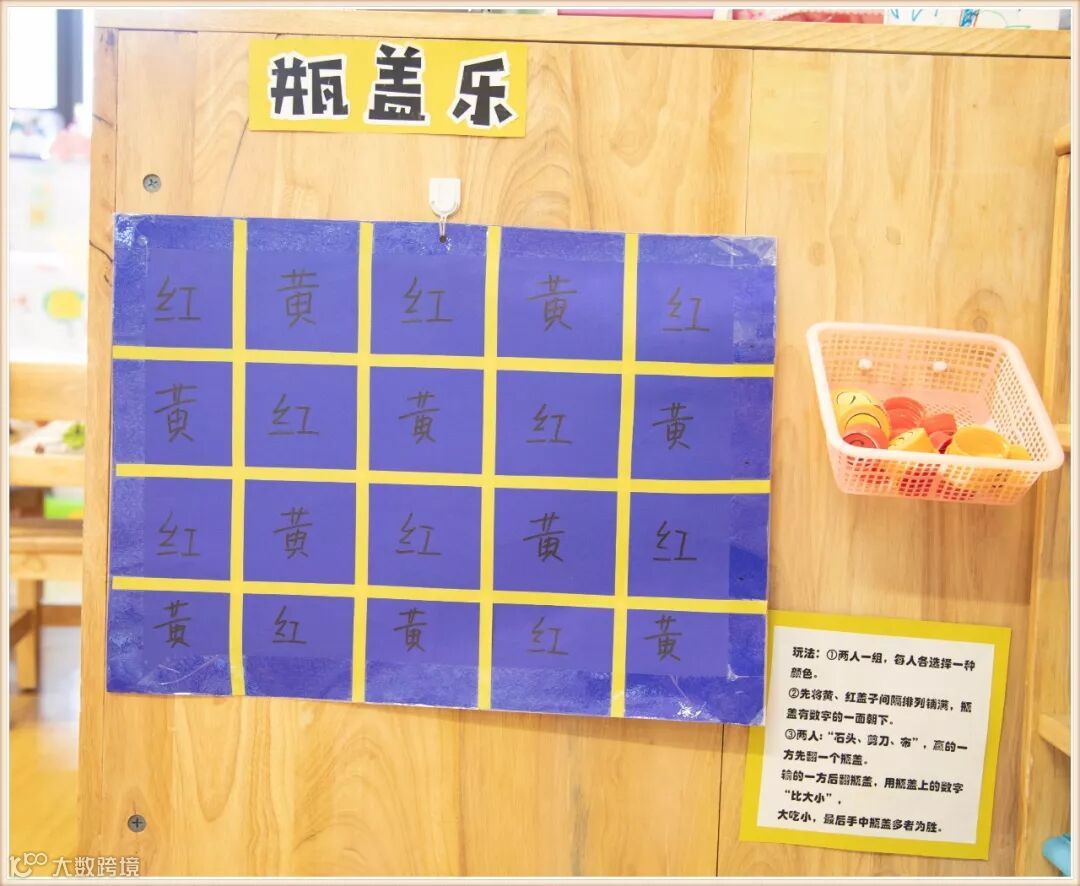 瓶盖乐
红 黄 红 黄 红
黄 红 黄 红 黄
红 黄 红 黄 红
黄 红 黄 红 黄
玩法：①两人一组，每人各选择一种
颜色。
②先将黄、红盖子间隔排列铺满，瓶
盖有数字的一面朝下。
③两人：“石头、剪刀、布”，赢的一
方先翻一个瓶盖。
输的一方后翻瓶盖，用瓶盖上的数字
“比大小”，
大吃小，最后手中瓶盖多者为胜。
大数跨境